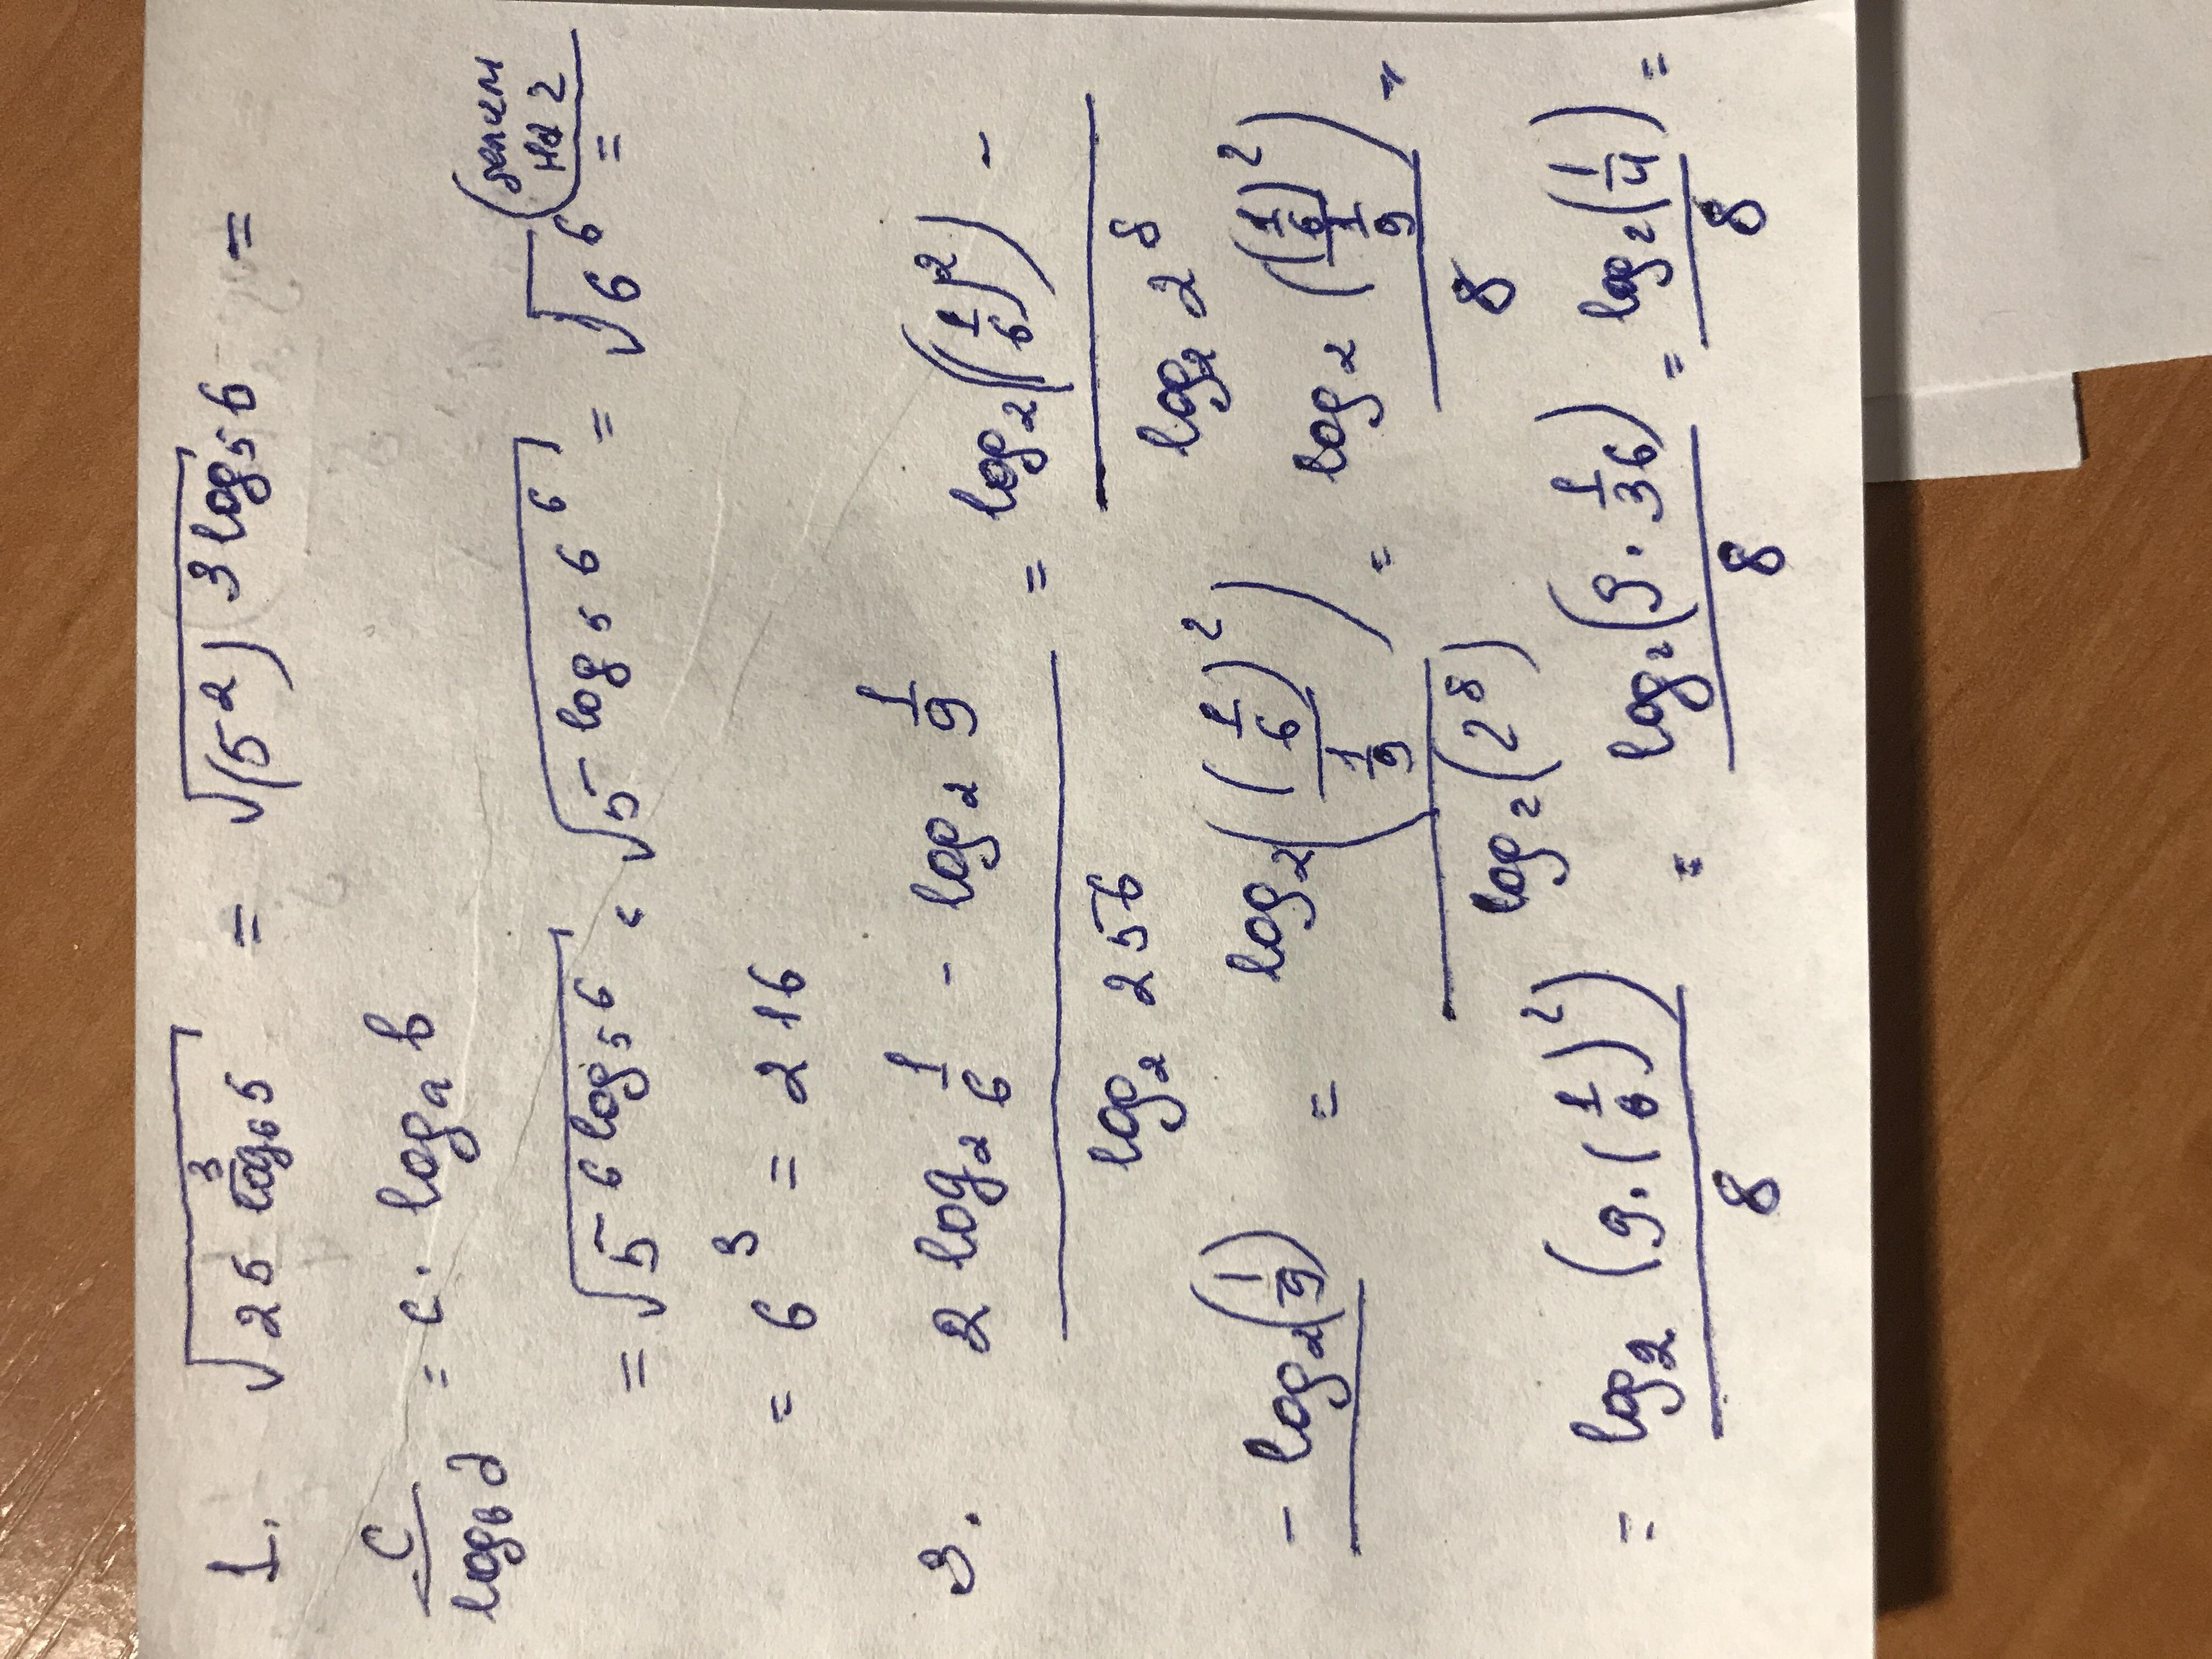 1. √(25^(3/log₆5)) = √((5²)^(3log₅6)) =
c/log_b a = c · log_a b
= √(5^(6log₅6)) = √(5^(log₅6⁶)) = √(6⁶) (делим на 2) =
= 6³ = 216
3. (2log₂ 1/6 - log₂ 1/9)/(log₂ 256) = (log₂((1/6)²) -
- log₂(1/9))/(log₂ 2⁸) = (log₂((1/6)²/(1/9)))/(log₂(2⁸)) = (log₂((1/6)²/(1/9)))/8 =
= (log₂(9 · (1/6)²))/8 = (log₂(9 · 1/36))/8 = (log₂(1/4))/8 =